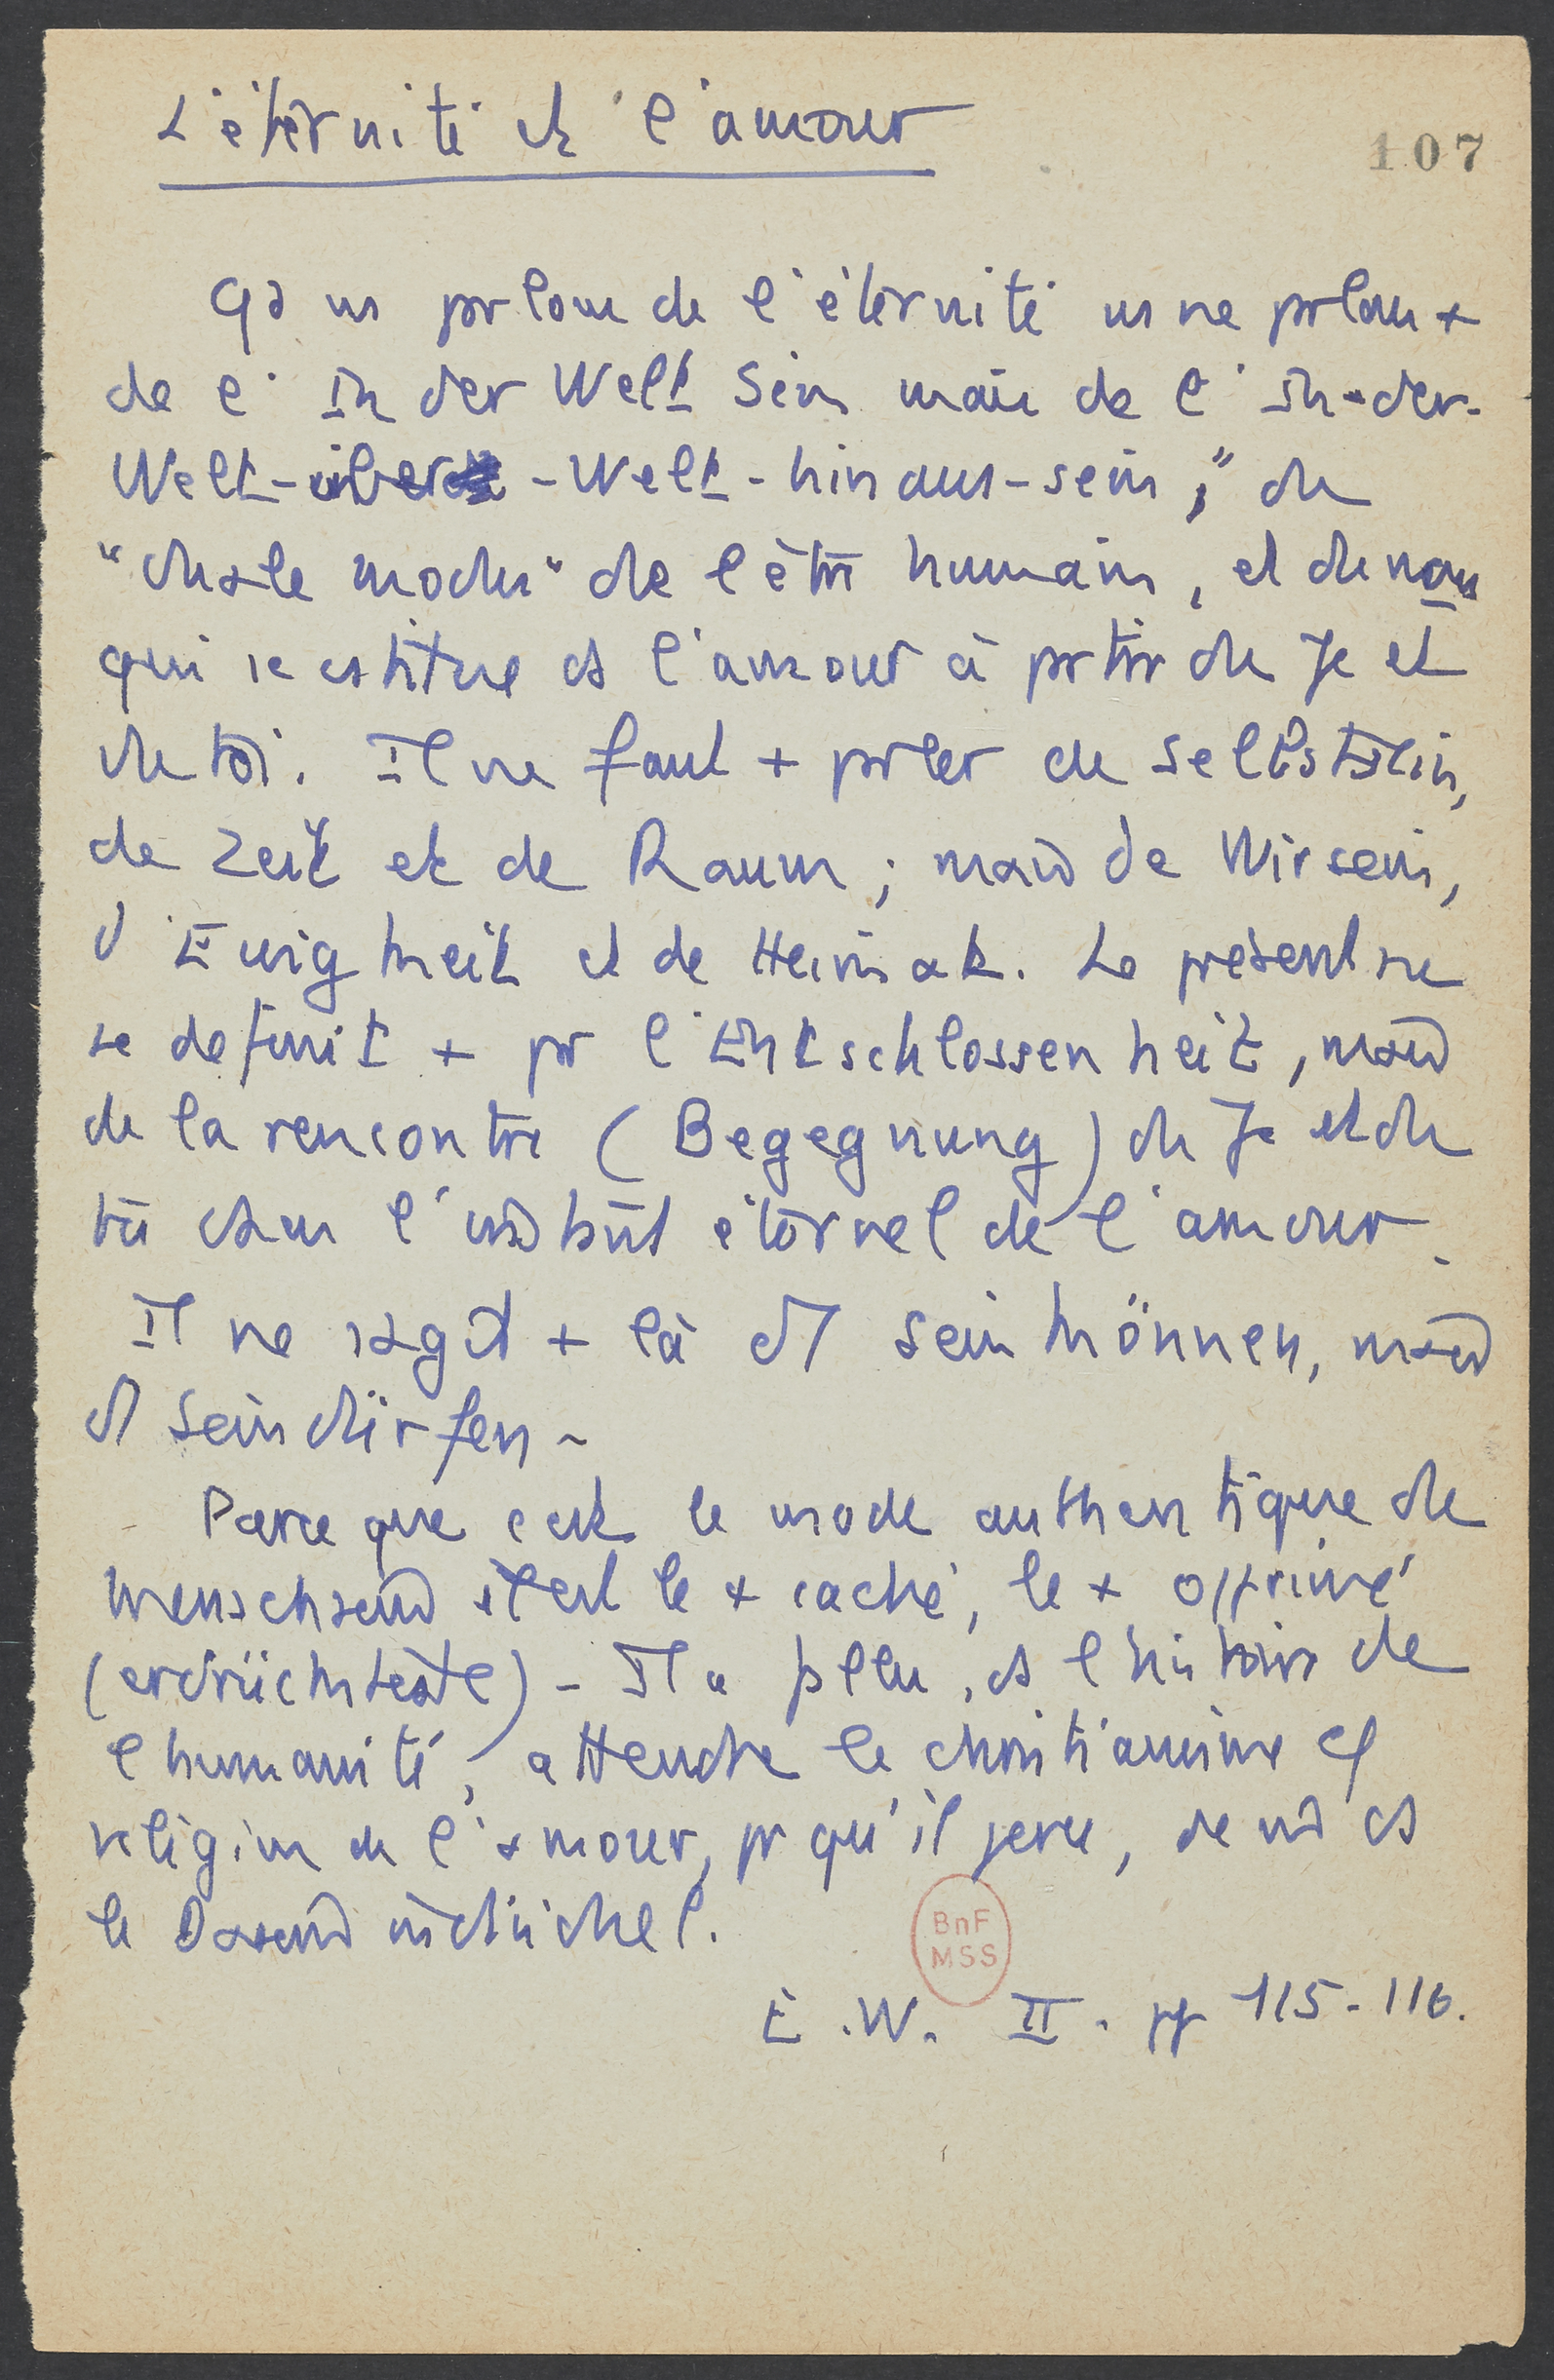 L'éternité et l'amour
107
Qd ns prlons de l'éternité ns ne prlons +
de l' In der Welt Sein mais de l' In-der-
Welt-über-Welt-hinaus-sein," du
"dualen modus" de l'être humain, et du nous
qui se cstitue ds l'amour à prtir du Je et
du toi. Il ne faut + prler de Selbstsein,
de Zeit et de Raum ; mais de Wirsein,
d'Ewigkeit et de Heimat. Le présent ne
se définit + pr l'Entschlossenheit, mais
de la rencontre (Begegnung) du Je et du
tu dans l'instant éternel de l'amour.
Il ne s'agit + là d'1 Sein können, mais
d'1 Sein dürfen-
Parce que c'est le mode authentique du
Menschsein il est le + caché, le + opprimé
(erdrückteste) - Il a fallu, ds l'histoire de
l'humanité, attendre le christianisme cf
religion de l'amour, pr qu'il perce,
le Dasein individuel.
BnF
MSS
E.W. II. pp 115-116.